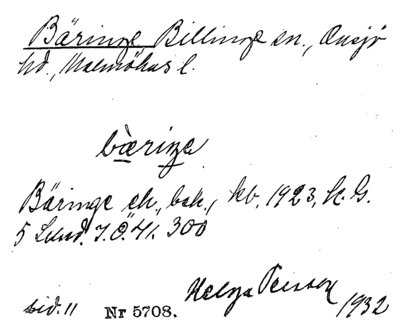 Bäringe Billinge sn., Onsjö
hd., Malmöhus l.
bæringe
Bäringe eh., bsk., kb. 1923, H. G.
5 Lund. J.Ö.41. 300
sid. 11 Nr 5708. Helga Persson 1932